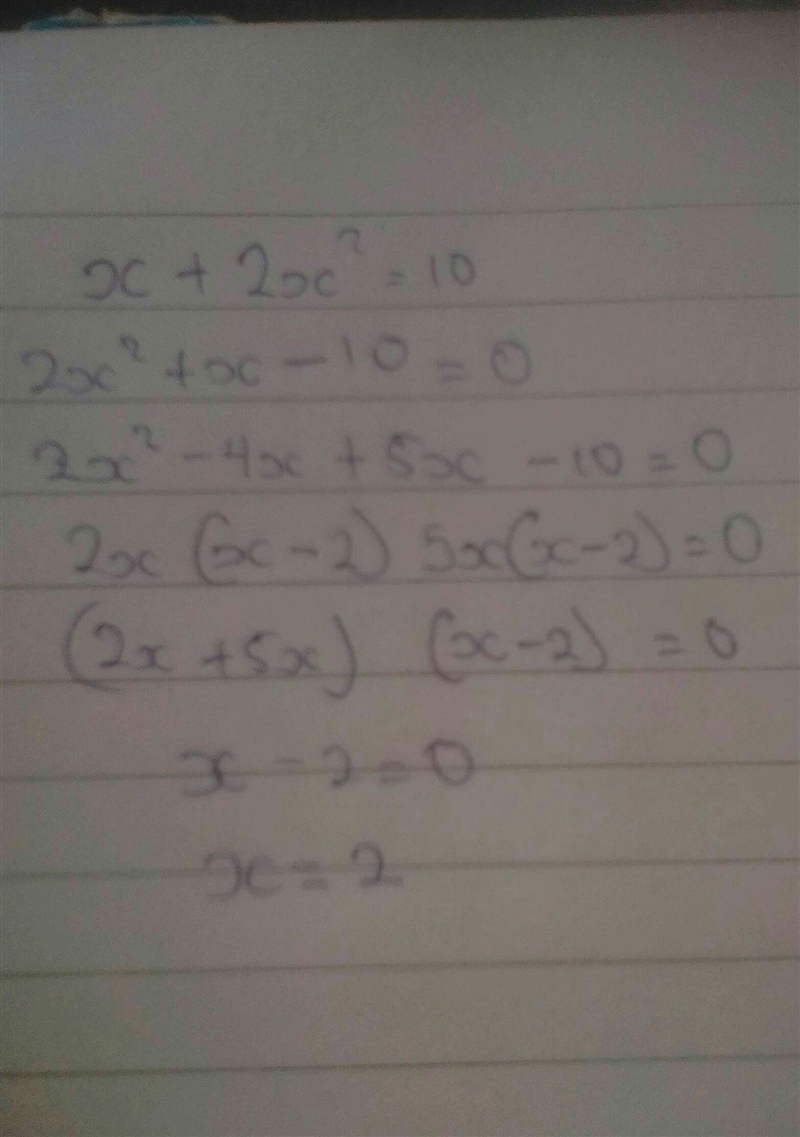 x + 2x² = 10
2x² + x - 10 = 0
2x² - 4x + 5x - 10 = 0
2x (x - 2) 5x(x - 2) = 0
(2x + 5x) (x - 2) = 0
x - 2 = 0
x = 2